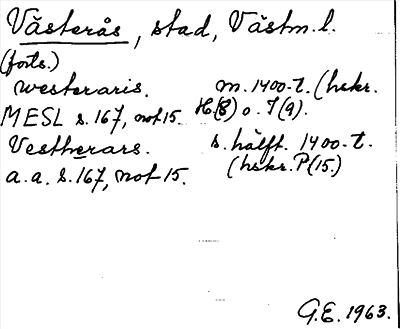 Västerås, stad, Västm.l.
(forts.)
westeraris. m. 1400-t. (hskr.
MESL s. 167, not 15. H(8) o. I(9).
Vestherars. s. hälft. 1400-t.
a.a. s. 167, not 15. (hskr. P(15.)
G.E. 1963.